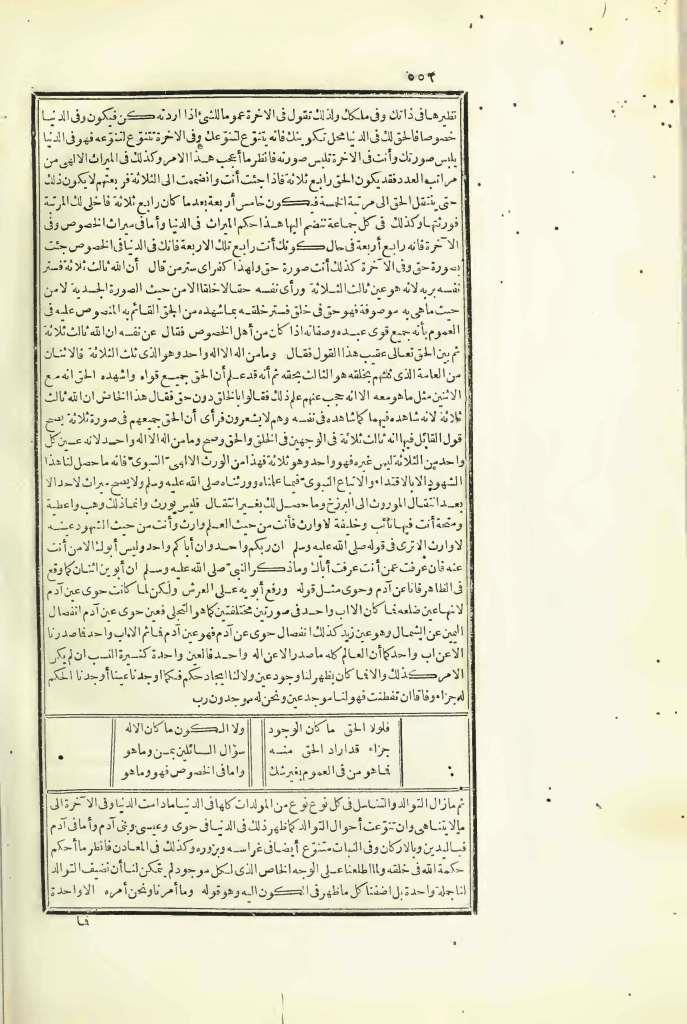 ٥٥٢
نظيرها فى ذاتك وفى ملكك ولذلك تقول فى الاخرة عموما للشئ اذا اردته كن فيكون وفى الدنيا
خصوصا فالحق لك فى الدنيا محل تكوينك فانه يتنوع لتنوعك وفى الاخرة تتنوع لتنوعه فهو فى الدنيا
يلبس صورتك وأنت فى الآخرة تلبس صورته فانظر ما أعجب هذا الامر وكذلك فى الميراث الالهى من
مراتب العدد فقد يكون الحق رابع ثلاثة فاذا جئت أنت وانضممت الى الثلاثة فربعتهم لا يكون ذلك
حتى ينتقل الحق الى مرتبة الخمسة فيكون خامس أربعة بعد ما كان رابع ثلاثة فأخلى لك المرتبة
فورثتها وكذلك فى كل جماعة تنضم اليها هذا حكم الميراث فى الدنيا وأما فى ميراث الخصوص وفى
الآخرة فانه رابع أربعة فى حال كونك أنت رابع تلك الاربعة فانك فى الدنيا فى الخصوص جئت
بصورة حق وفى الآخرة كذلك أنت صورة حق ولهذا كفر اى ستر من قال أن الله ثالث ثلاثة فستر
نفسه بربه لانه هو عين ثالث الثلاثة ورأى نفسه حقا لا خلقا الا من حيث الصورة الجسدية لا من
حيث ما هى به موصوفة فهو حق فى خلق فستر خلقه بما شهده من الحق القائم به المنصوص عليه فى
العموم بأنه جميع قوى عبده وصفاته اذا كان من أهل الخصوص فقال عن نفسه ان الله ثالث ثلاثة
ثم بين الحق تعالى عقيب هذا القول فقال وما من اله الا اله واحد وهو الذى ثلث الثلاثة فالاثنان
من العامة الذى ثلثهم بخلقه هو الثالث بحقه ثم أنه قد علم أن الحق جميع قواه واشهده الحق انه مع
الاثنين مثل ما هو معه الا انه حجب عنهم علم ذلك فقالوا بالخلق دون حق فقال هذا الخاص ان الله ثالث
ثلاثة لانه شاهده فيهما كما شاهده فى نفسه وهم لا يشعرون فرأى أن الحق جميعهم فى صورة ثلاثة يصح
قول القائل فيها انه ثالث ثلاثة فى الوجهين فى الخلق والحق وصح وما من اله الا اله واحد لانه عين كل
واحد من الثلاثة ليس غيره فهو واحد وهو ثلاثة فهذا من الورث الالهى النبوى فانه ما حصل لنا هذا
الشهود الا بالاقتداء والاتباع النبوى فيما علمناه وورثناه صلى الله عليه وسلم ولا يصح ميراث لاحد الا
بعد انتقال الموروث الى البرزخ وما حصل لك بغير انتقال فليس بورث وانما ذلك وهب واعطية
ومنحة أنت فيها نائب وخليفة لا وارث فأنت من حيث العلم وارث وأنت من حيث الشهود عينه
لا وارث الا ترى فى قوله صلى الله عليه وسلم ان ربكم واحد وان أباكم واحد وليس أبوك الا من أنت
عنه فان عرفت عمن أنت عرفت أباك وما ذكر النبى صلى الله عليه وسلم ان أبوين اثنان كما وقع
فى الظاهر فانا عن آدم وحوى مثل قوله ورفع أبويه على العرش ولكن لما كانت حوى عين آدم
لانها عين ضلعه فما كان الا اب واحد فى صورتين مختلفتين كما هو التجلى فعين حوى عين آدم انفصال
اليمين عن الشمال وهو عين زيد كذلك انفصال حوى عن آدم فهو عين آدم فما ثم الا اب واحد فما صدرنا
الا عن اب واحد كما أن العالم كله ما صدر الا عن اله واحد فالعين واحدة كثيرة النسب ان لم يكن
الامر كذلك والا فما كان يظهر لنا وجود عين ولا لنا ايجاد حكم فكما اوجدنا عينا أوجدنا الحكم
له جزاء وفاقا ان تفطنت فهو لنا موجد عين ونحن له موجدون رب
فلولا الحق ما كان الوجود ولا الكون ما كان الاله
جزاء قد اراد الحق منه سؤال السائلين بمن وما هو
فما هو من فى العموم بغير شك واما فى الخصوص فهو وما هو
ثم ما زال التوالد والتناسل فى كل نوع نوع من المولدات كلها فى الدنيا مادامت الدنيا وفى الآخرة الى
ما لا يتناهى وان تنوعت أحوال التوالد كما ظهر ذلك فى الدنيا فى حوى وعيسى وبنى آدم وأما فى آدم
فباليدين وبالاركان وفى النبات متنوع أيضا فى غراسه وبزوره وكذلك فى المعادن فانظر ما أحكم
حكمة الله فى خلقه ولما اطلعنا على الوجه الخاص الذى لكل موجود لم يتمكن لنا أن نضيف التوالد
لنا جملة واحدة بل اضفنا كل ما ظهر فى الكون اليه وهو قوله وما أمرنا ونحن أمره الا واحدة
فا